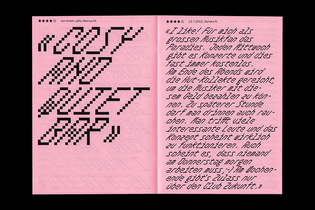 «COSY
AND
QUIET
BAR»
«I like! Für mich als
grossen Musikfan das
Paradies. Jeden Mittwoch
gibt es Konzerte und dies
fast immer kostenlos.
Am Ende des Abends wird
die Hut-Kollekte gereicht,
um die Musiker mit die-
sem Geld bezahlen zu kön-
nen. Zu späterer Stunde
darf man drinnen auch rau-
chen. Man trifft viele
interessante Leute und das
Konzept scheint wirklich
zu funktionieren. Auch
scheint es, dass niemand
am Donnerstag morgen
arbeiten muss. Am Wochen-
ende gibt's Zulass nur
über den Club Zukunft.»